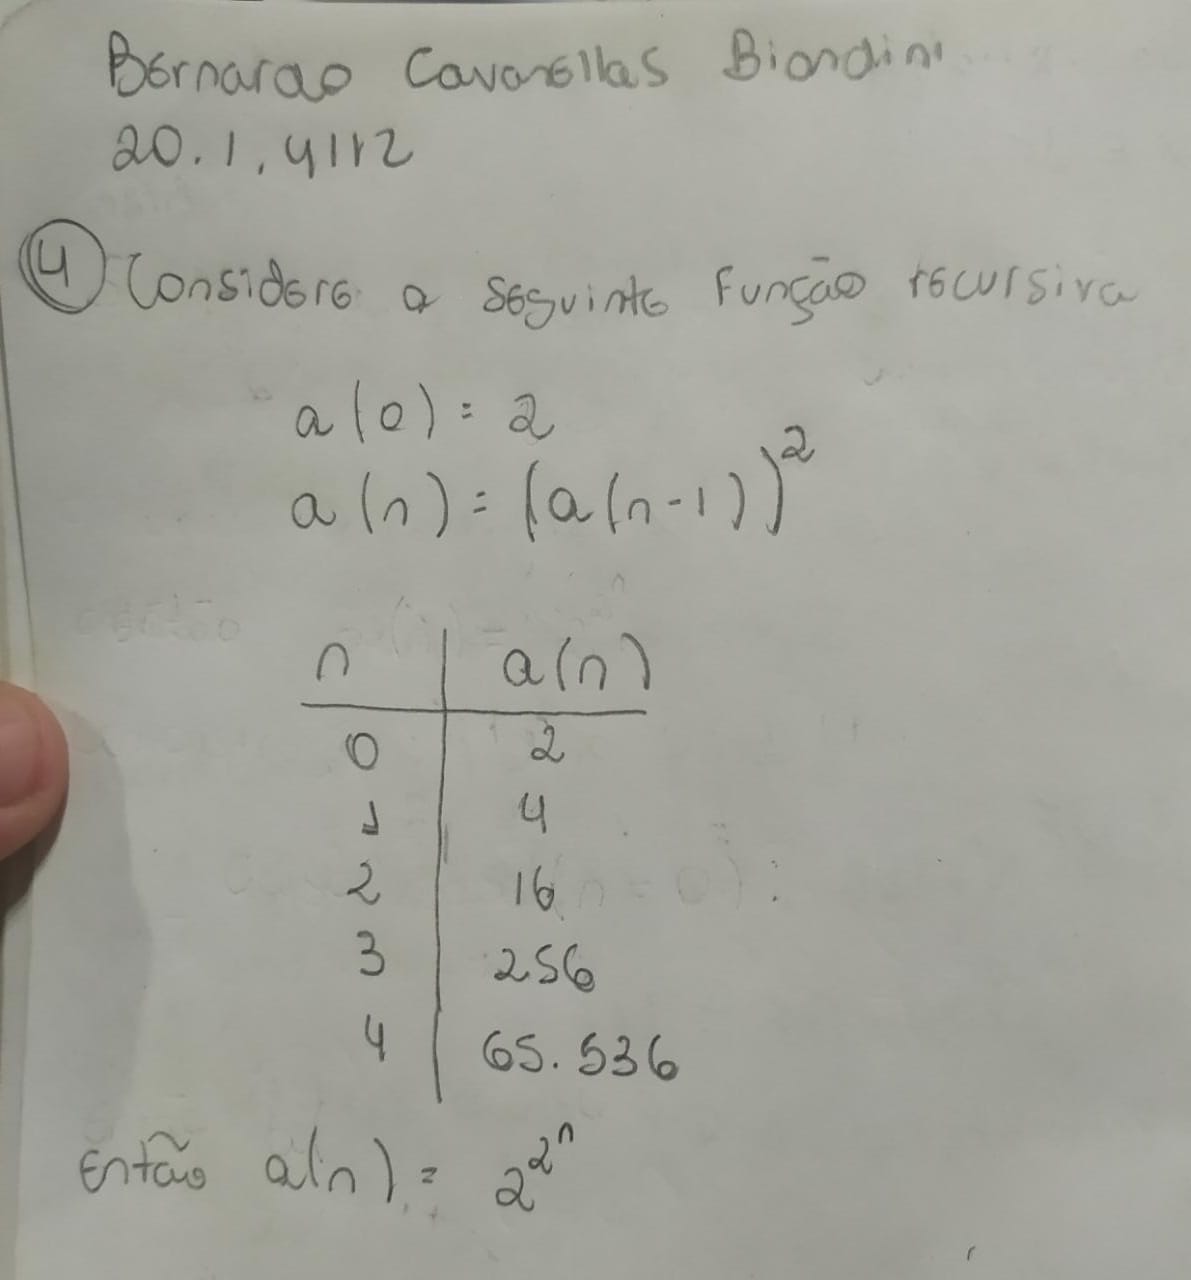 Bernardo Cavanellas Biondini
20.1.4112
4 Considere a seguinte função recursiva
a(0) = 2
a(n) = (a(n-1))²
n | a(n)
0 | 2
1 | 4
2 | 16
3 | 256
4 | 65.536
Então a(n) = 2^2^n